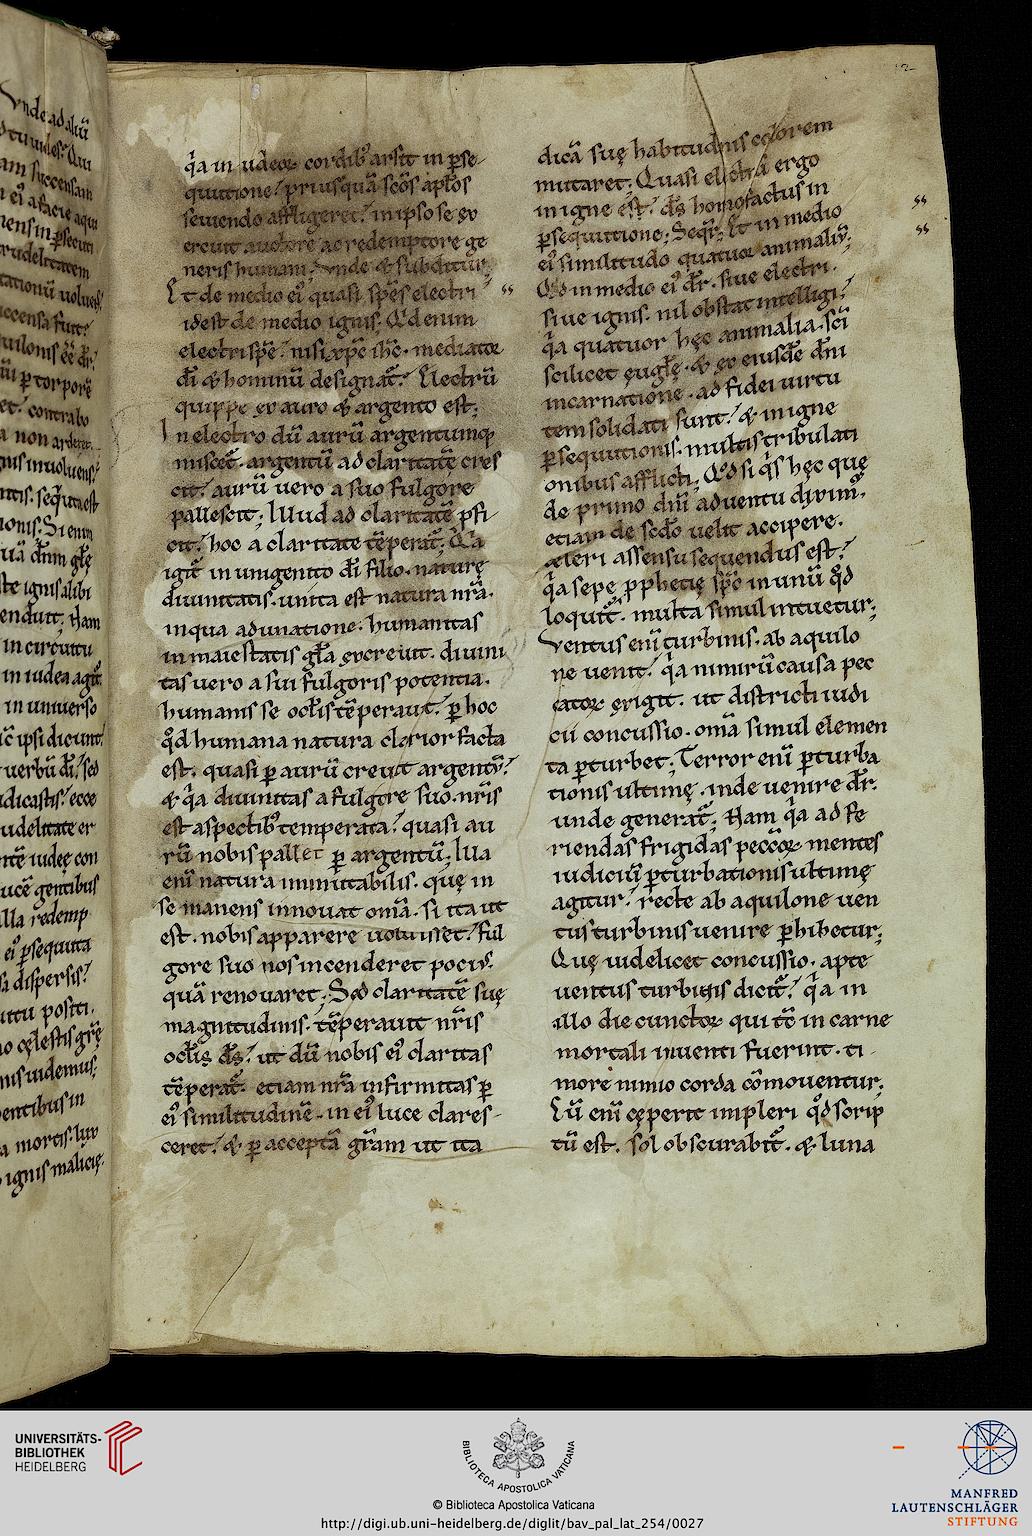 q̅a in iudeoꝝ cordib; arsit in ꝑse-
quutione? priusquā sc̅os ap̅los
seuiendo affligeret? in ipso se ex
ercuit auctore ac redemptore ge
neris humani. Unde & subditur;
Et de medio ei9 quasi sp̅es electri
idest de medio ignis. Q̅d enim
electri sp̅e? nisi xp̅c ih̅c. mediatoꝛ
d̅i & hominū designat̅? Electrū
quippe ex auro & argento est;
In electro dū aurū argentumq;
miscet̅. argentū ad claritatē cres
cit? aurū uero a suo fulgore
pallescit; Illud ad claritatē ꝓfi
cit? hoc a claritate tēperat̅; Q̅a
igit̅ in unigenito d̅i filio. naturę
diuinitatis. unita est natura nr̅a.
in qua adunatione. humanitas
in maiestatis gl̅a excreuit. diuini
tas uero a sui fulgoris potentia.
humanis se ocl̅is tēperauit? ꝑ hoc
q̅d humana natura clarior facta
est. quasi ꝑ aurū creuit argentū?
& q̅a diuinitas a fulgore suo. nr̅is
est aspectib; temperata? quasi au
rū nobis pallet ꝑ argentū; Illa
eni̅ natura inmutabilis. quę in
se manens innouat om̅a. si ita ut
est. nobis apparere uoluisset? ful
gore suo nos incenderet poci9.
quā renouaret; Sed claritatē suę
magnitudinis. tēperauit nr̅is
ocl̅is d̅s? ut dū nobis ei9 claritas
tēperat̅. etiam nr̅a infirmitas ꝑ
ei9 similitudinē. in ei9 luce clares-
ceret? & ꝑ acceptā gr̅am ut ita
dicā suę habitudinis colorem
mutaret; Quasi electrū ergo
in igne est? d̅s homo factus in
ꝑsequutione; Seqr̅; Et in medio
ei9 similitudo quatuor animaliū;
Q̅d in medio ei9 dr̅. siue electri.
siue ignis. nil obstat intelligi?
q̅a quatuor hęc animalia. sc̅i
scilicet eugl̅ę. & ex eiusdē dn̅i
incarnatione. ad fidei uirtu
tem solidati sunt? & in igne
ꝑsequutionis. multis tribulati
onibus afflicti; Q̅d si q̅s hęc quę
de primo dn̅i aduentu diximus,
etiam de sc̅do uelit accipere.
celeri assensu sequendus est?
q̅a sepe ꝓphetię sp̅s in unū q̅d
loquit̅. multa simul intuetur;
Ventus eni̅ turbinis. ab aquilo
ne uenit? q̅a nimirū causa pec
catoꝝ exigit. ut districti iudi
cii concussio. om̅a simul elemen
ta ꝑturbet; Terror eni̅ ꝑturba
tionis ultimę. inde uenire dr̅.
unde generat̅; Nam q̅a ad fe
riendas frigidas pecc̅oꝝ mentes
iudiciū ꝑturbationis ultimę
agitur? recte ab aquilone uen
tus turbinis uenire ꝑhibetur;
Quę uidelicet concussio. apte
uentus turbinis dicit̅? q̅a in
illo die cunctoꝝ qui tc̅ in carne
mortali inuenti fuerint. ti-
more nimio corda cōmouentur;
Cū eni̅ cęperit impleri q̅d scrip
tū est. sol obscurabit̅. & luna
UNIVERSITÄTS-
BIBLIOTHEK
HEIDELBERG
BIBLIOTECA APOSTOLICA VATICANA
© Biblioteca Apostolica Vaticana
http://digi.ub.uni-heidelberg.de/diglit/bav_pal_lat_254/0027
MANFRED
LAUTENSCHLÄGER
STIFTUNG